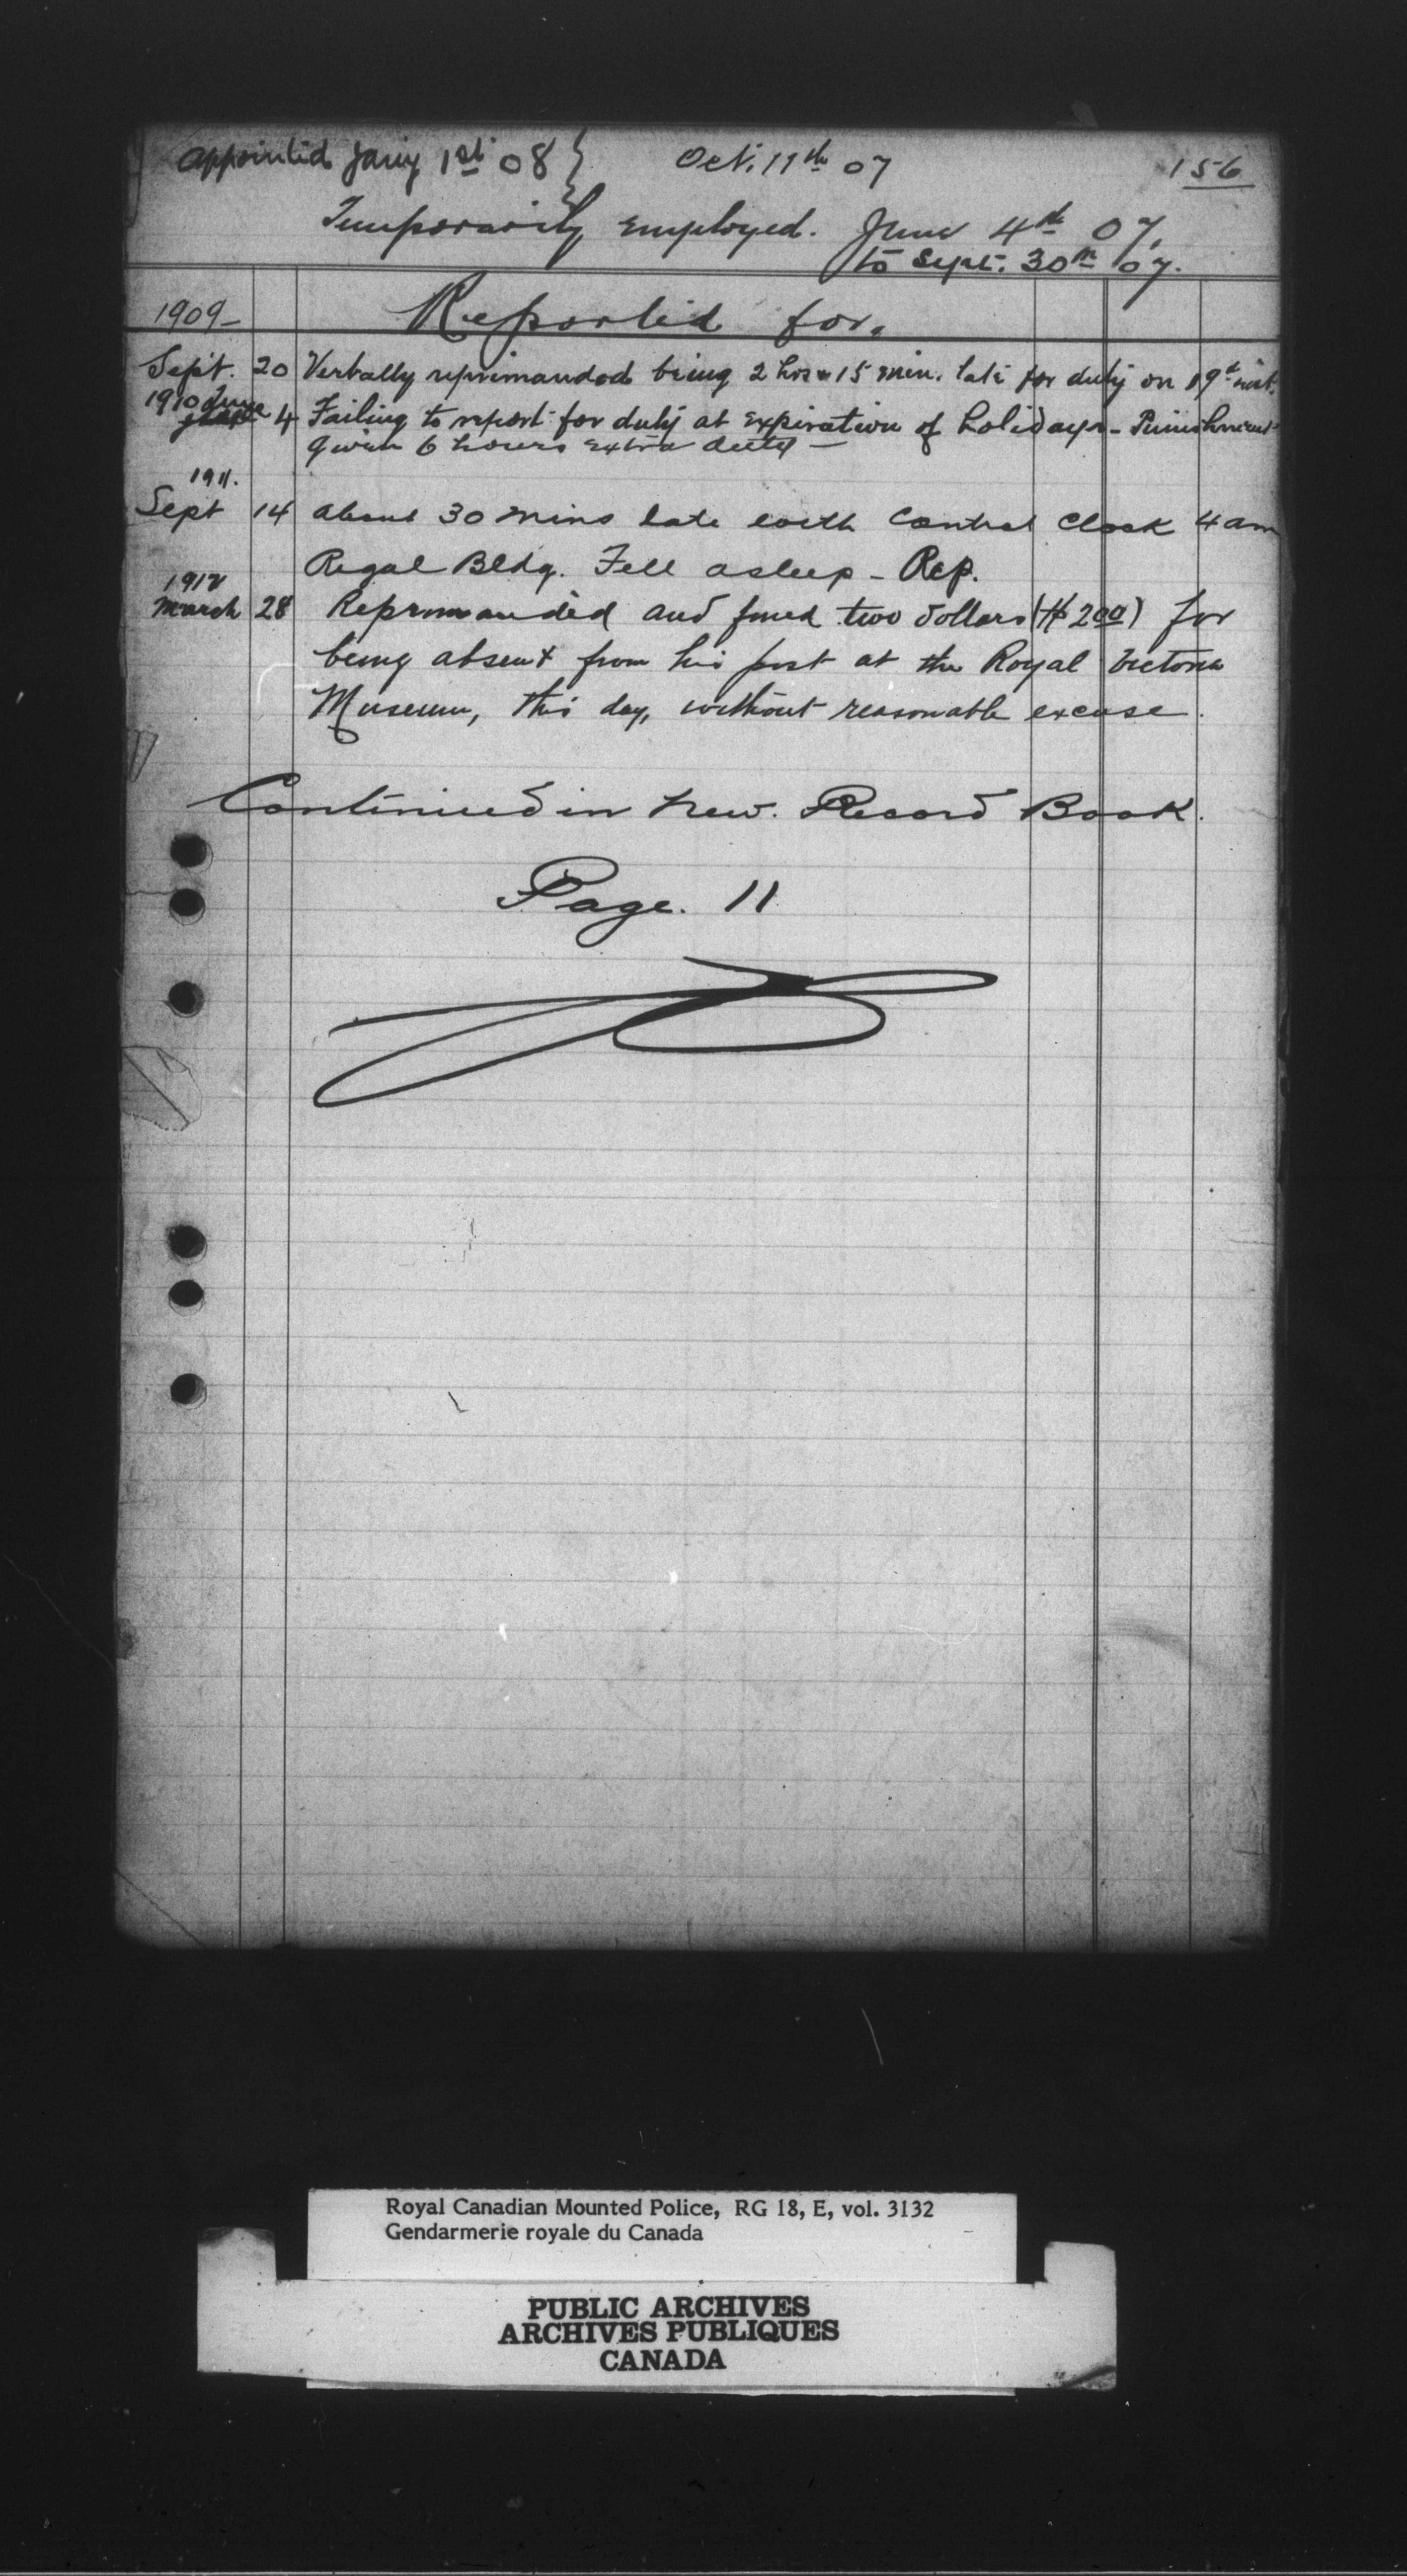 Appointed Jany 1st 08 } Oct. 11th 07 156
Temporarily Employed. June 4th 07,
to Sept. 30th 07.
1909- Reported for.
Sept. 20 Verbally reprimanded being 2 hrs & 15 min. late for duty on 19th inst.
1910 June 4 Failing to report for duty at expiration of holidays - Punishment
given 6 hours extra duty -
1911.
Sept 14 about 30 mins late with Control Clock 4 am
Regal Bldg. Fell asleep - Rep.
1912
March 28 Reprimanded and fined two dollars ($2.00) for
being absent from his post at the Royal Victoria
Museum, this day, without reasonable excuse.
Continued in New. Record Book.
Page. 11
Royal Canadian Mounted Police, RG 18, E, vol. 3132
Gendarmerie royale du Canada
PUBLIC ARCHIVES
ARCHIVES PUBLIQUES
CANADA